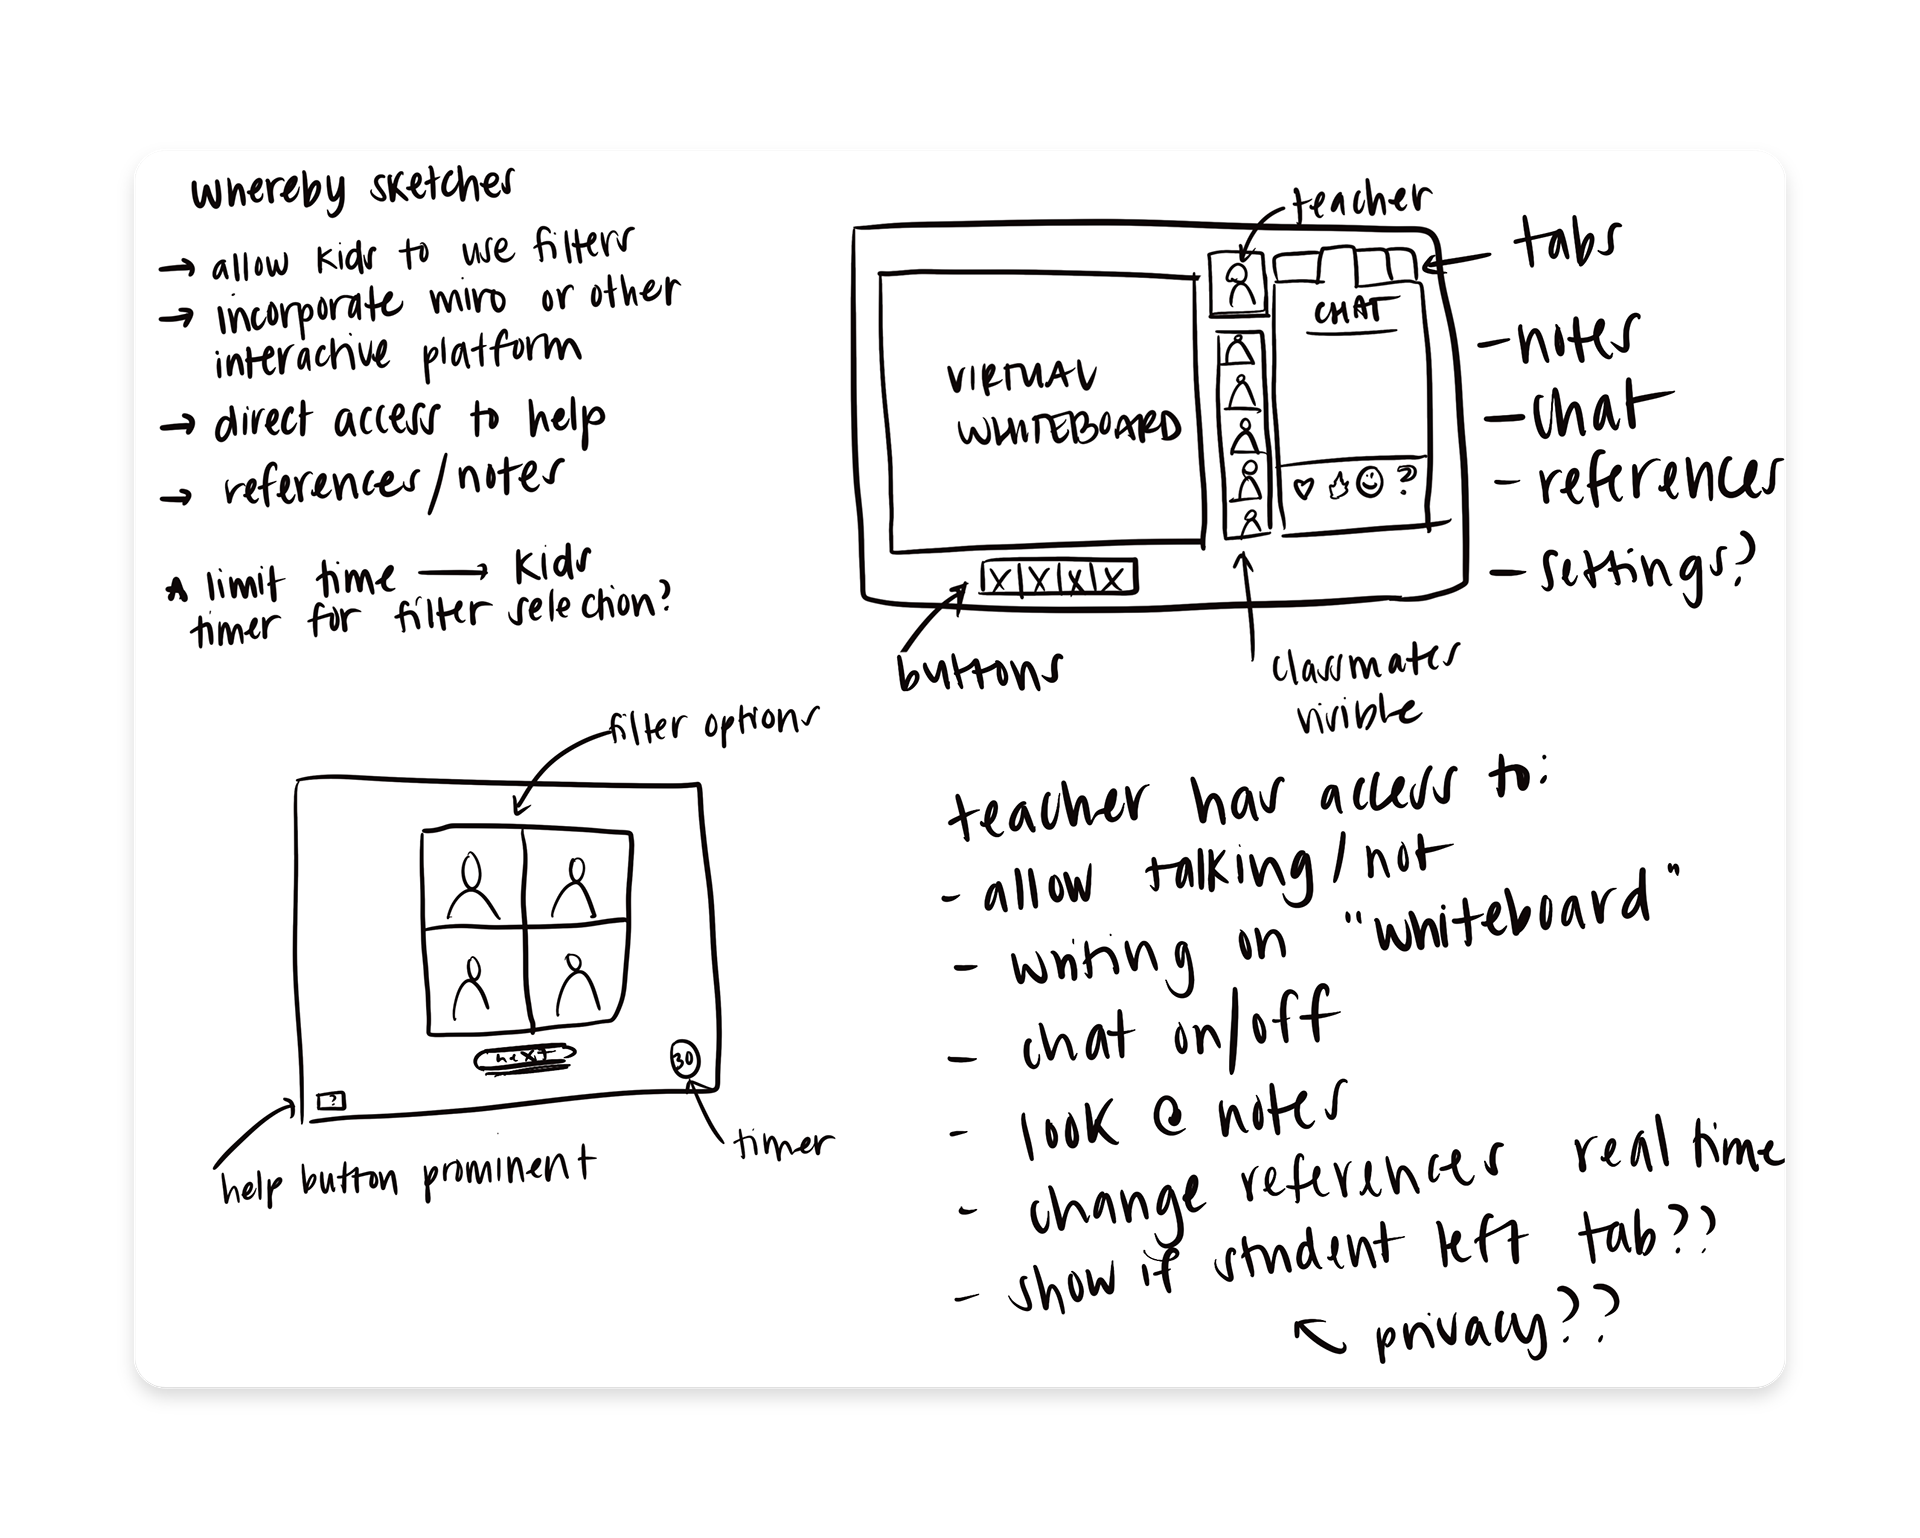 whereby sketches
→ allow kids to use filters
→ incorporate miro or other
interactive platform
→ direct access to help
→ references/notes
limit time → kids
timer for filter selection?
teacher
tabs
CHAT
VIRTUAL
WHITEBOARD
?
X|X|X|X
- notes
- chat
- references
- settings?
buttons
classmates
visible
filter options
next
30
?
timer
help button prominent
teacher has access to:
- allow talking/not
- writing on "whiteboard"
- chat on/off
- look @ notes
- change references real time
- show if student left tab??
privacy??